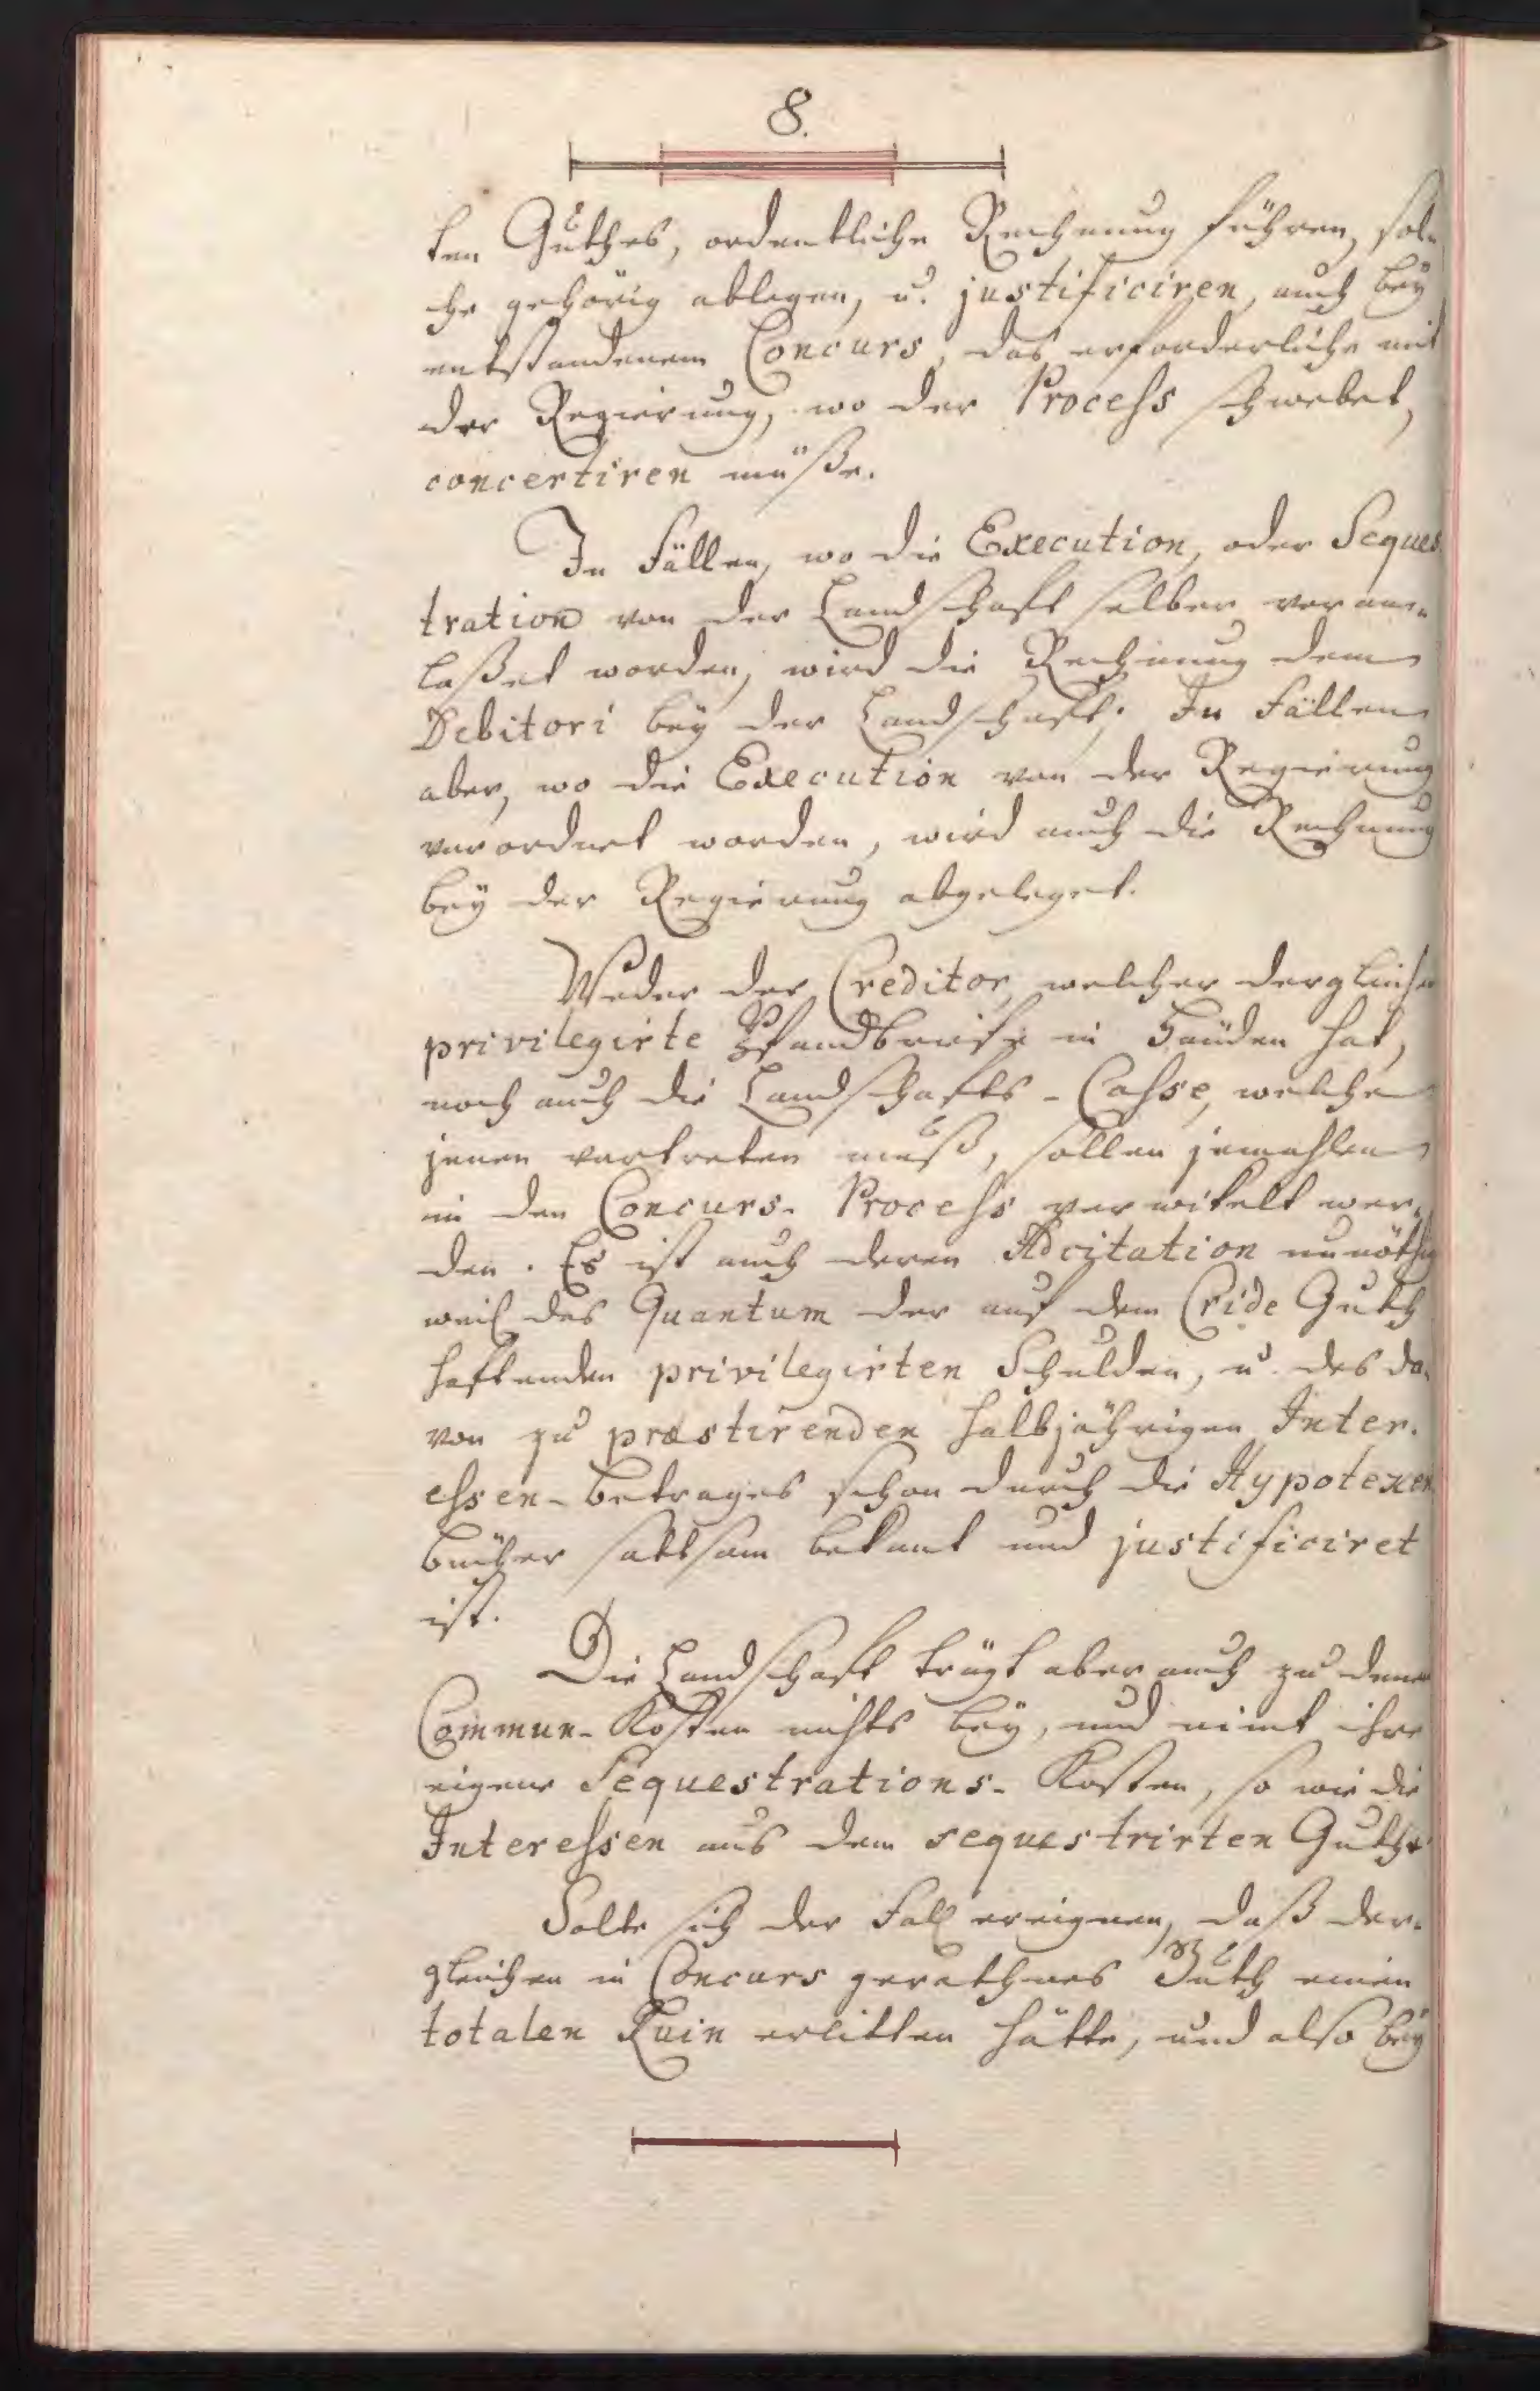 8.
ten Guthes, ordentliche Rechnung führen, sol-
che gehörig ablegen, u. justificiren, auch bey
entstandenem Concurs, das erforderliche mit
der Regierung, wo der Process schwebet,
concertiren müße.
In Fällen, wo die Execution, oder Seques-
tration von der Landschaft selber veran-
laßet worden, wird die Rechnung dem
Debitori bey der Landschaft; In Fällen
aber, wo die Execution von der Regierung
verordnet worden, wird auch die Rechnung
bey der Regierung abgeleget.
Weder der Creditor, welcher dergleichen
privilegirte Pfandbriefe in Händen hat,
noch auch die Landschafts-Casse, welche
jenen vertreten muß, sollen jemahlen
in den Concurs-Process verwikelt wer-
den. Es ist auch deren Adcitation unnöthig
weil das Quantum der auf dem Cride Guth
haftenden privilegirten Schulden, u. des da-
von zu præstirenden halbjährigen Inter-
essen-Betrages schon durch die Hypotequen
bücher sattsam bekant und justificiret
ist.
Die Landschaft trägt aber auch zu denen
Commun-Kosten nichts bey, und nimt ihre
eigene Sequestrations-Kosten, so wie die
Interessen aus dem sequestrirten Guthe.
Solte sich der Fall ereignen, daß der-
gleichen in Concurs gerathnes Guth einen
totalen Ruin erlitten hätte, und also bey